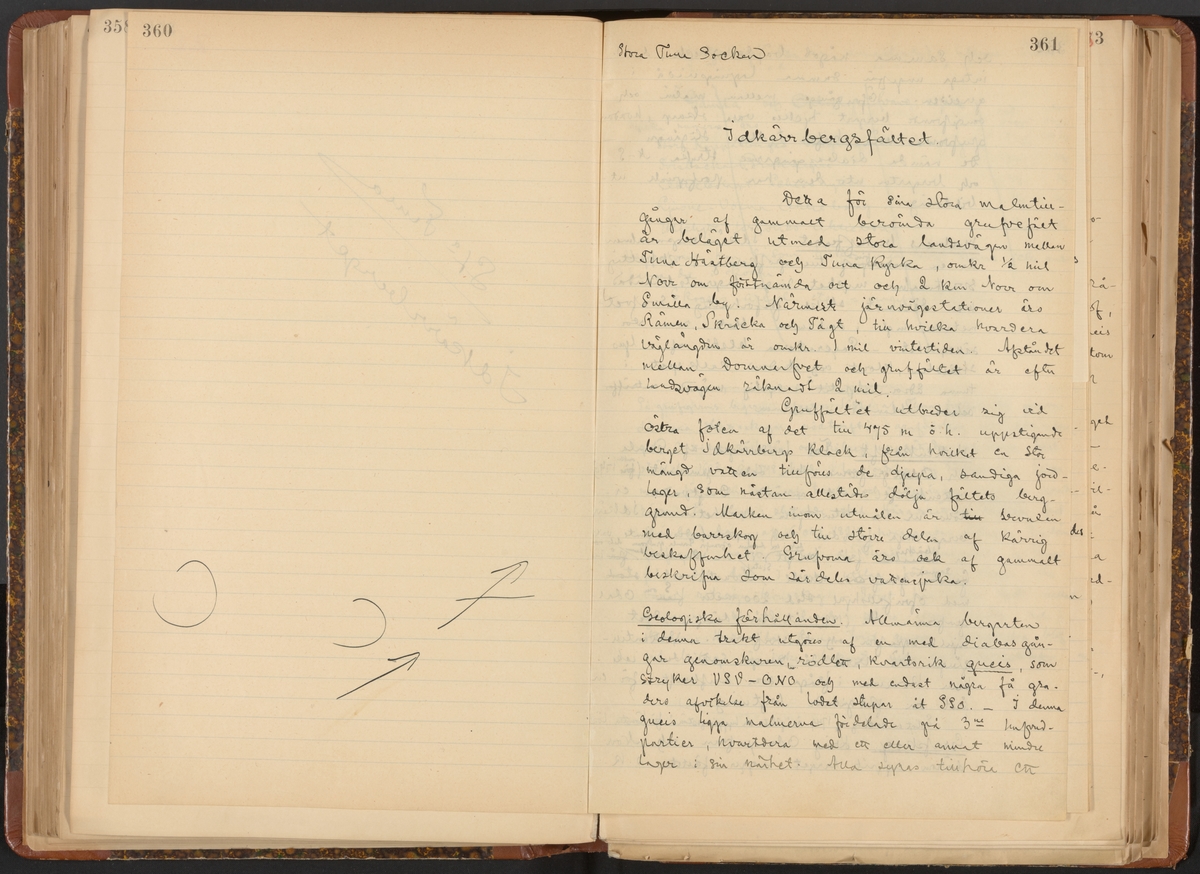 358
360
361
3
Stora Tuna Socken
Idkärrbergsfältet.
Detta för sina stora malmtill-
gångar af gammalt berömda gruffvefält
är beläget utmed stora landsvägen mellan
Tuna Hästberg och Tuna Kyrka, omkr 1/2 mil
Norr om förstnämda ort och 2 km Norr om
Smilla by. Närmast järnvägsstationer äro
Rämen, Skräcka och Tägt, till hvilka hvardera
väglängden är omkr. 1 mil vintertiden. Afståndet
mellan Domnarfvet och gruffältet är efter
landsvägen räknadt 2 mil.
Gruffältet utbreder sig vid
östra foten af det till 475 m ö.h. uppstigande
berget Idkärrbergs Klack, från hvilket en stor
mängd vatten tillföres de djupa, sandiga jord-
lager, som nästan allestädes dölja fältets berg-
grund. Marken inom utmålen är till bevuxen
med barrskog och till större delen af kärrig
beskaffenhet. Grufvorna äro ock af gammalt
beskrifna som särdeles vattensjuka.
Geologiska förhållanden. Allmänna bergarten
i denna trakt utgöres af en med diabasgån-
gar genomskuren, rödlett, kvartsrik gneis, som
stryker VSV-ONO och med endast några få gra-
ders afvikelse från lodet stupar åt SSO. — I denna
gneis ligga malmerna fördelade på 3ne hufvud-
partier, hvartdera med ett eller annat mindre
lager i sin närhet. Alla synas tillhöra ett